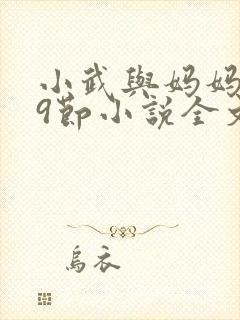 小武與妈妈
9節小說全文
烏衣